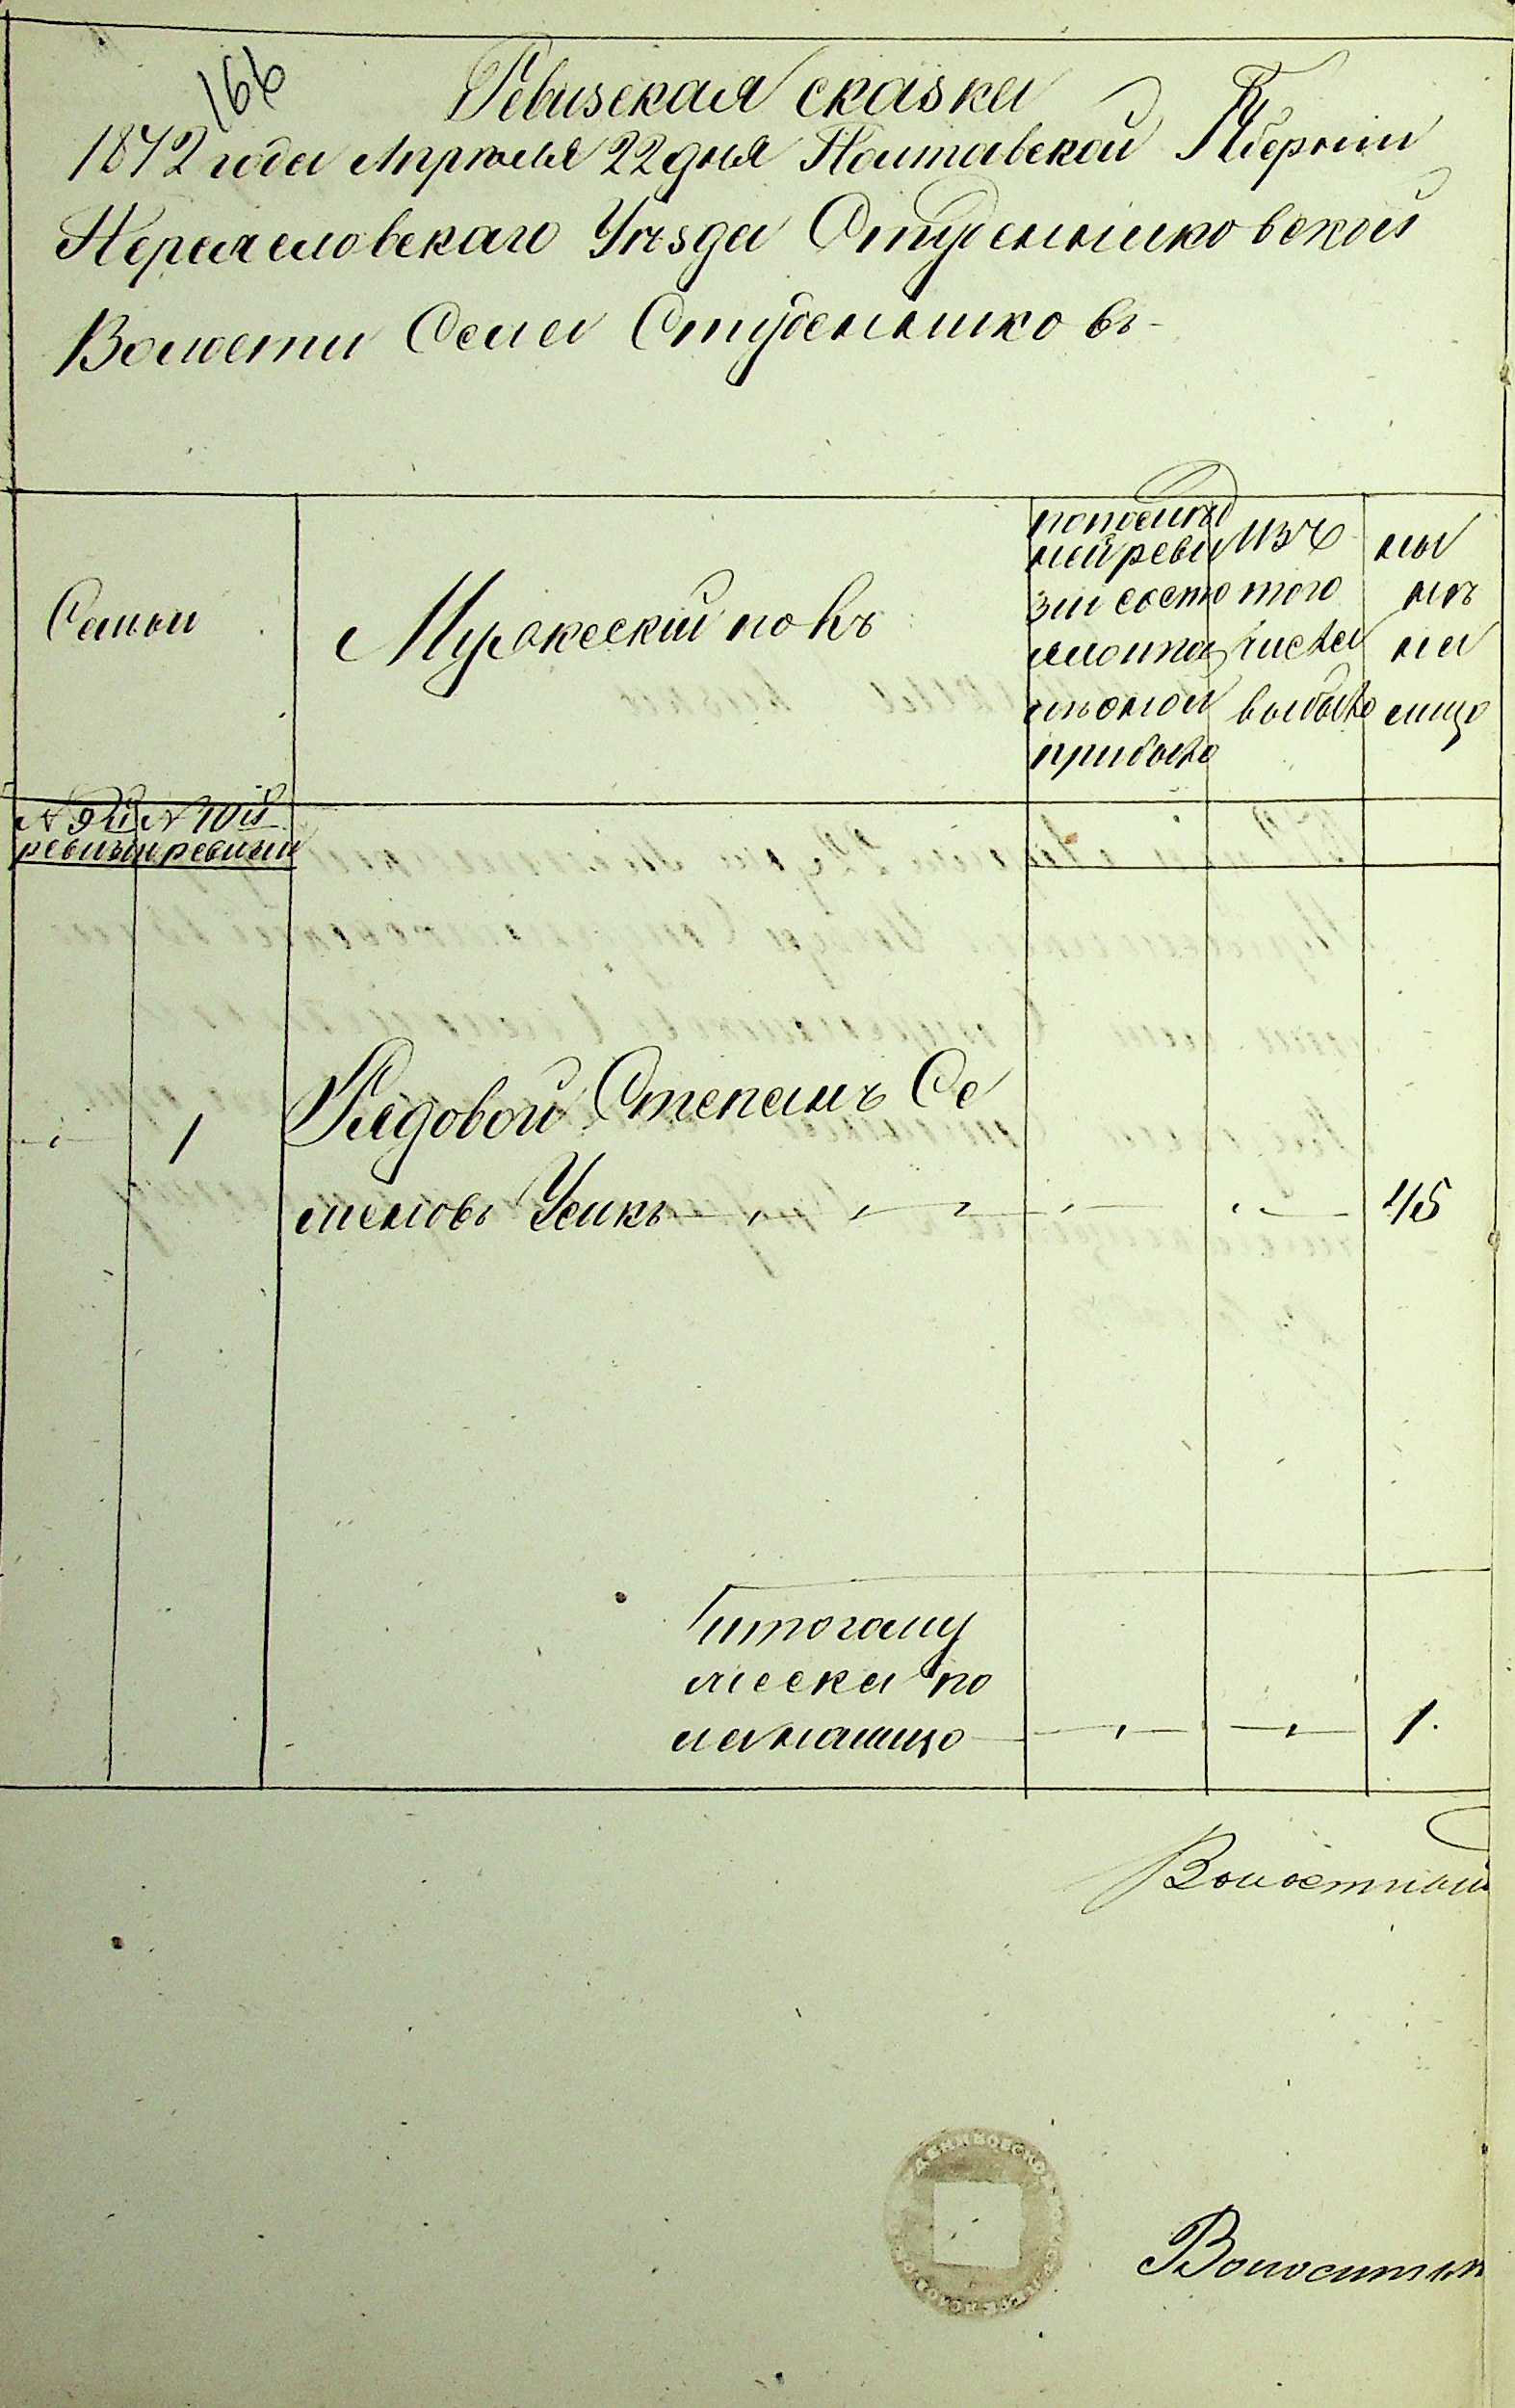 166
Ревизская сказка
1872 года Апреля 22 дня Полтавской Губернии
Переясловскаго Уѣзда Студениковской
Волости Села Студениковъ
Семьи
Мужескій полъ
по послѣд
ней реви
зіи состо
яло и по
слѣ оной
прибыло
изъ
того
числа
выбыло
ны
нѣ
на
лицо
№ 9й
ревизіи
№ 10й
ревизіи
1
Рядовой Степанъ Се
меновъ Усикъ
45
Итого му
жеска по
ла на лицо
1.
Волостный
Волостн